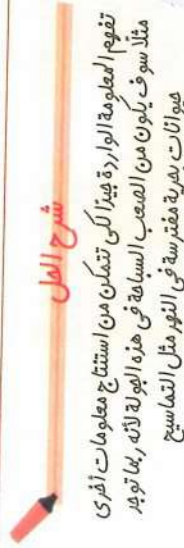 شرح الحل
تفهم المعلومة الواردة جيدًا لكي تتمكن من استنتاج معلومات أخرى
مثلا سوف يكون من الصعب السباحة في هذه الجولة لأنه ربما توجد
حيوانات بحرية مفترسة في النهر مثل التماسيح